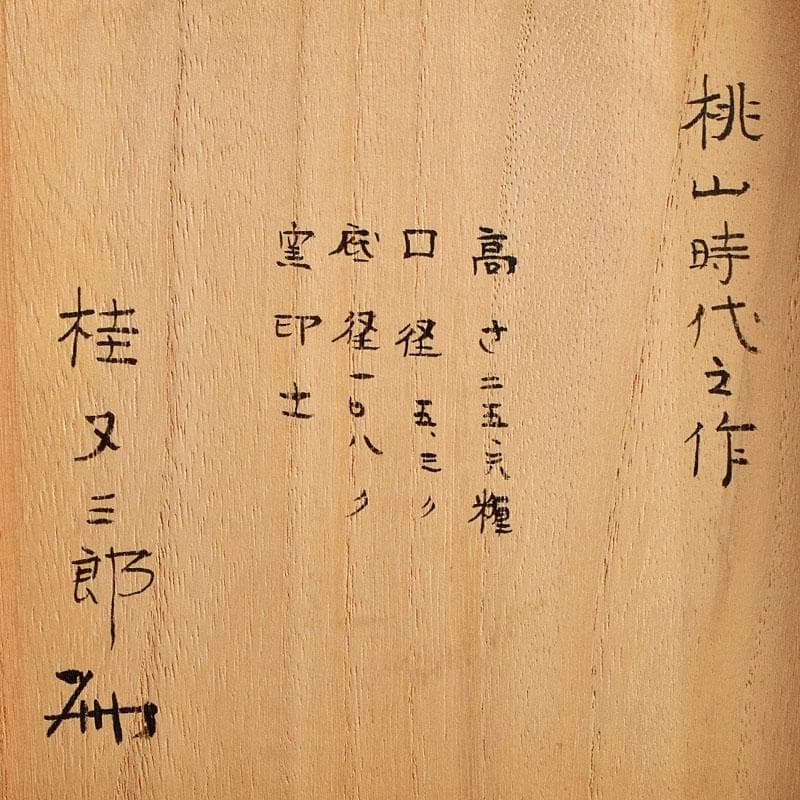 桃山時代之作
高さ二五、六糎
口径 五、三〃
底径一〇、八〃
窯印 士
桂又三郎